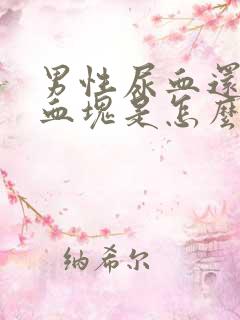 男性尿血還
血塊是怎麼
纳希尔